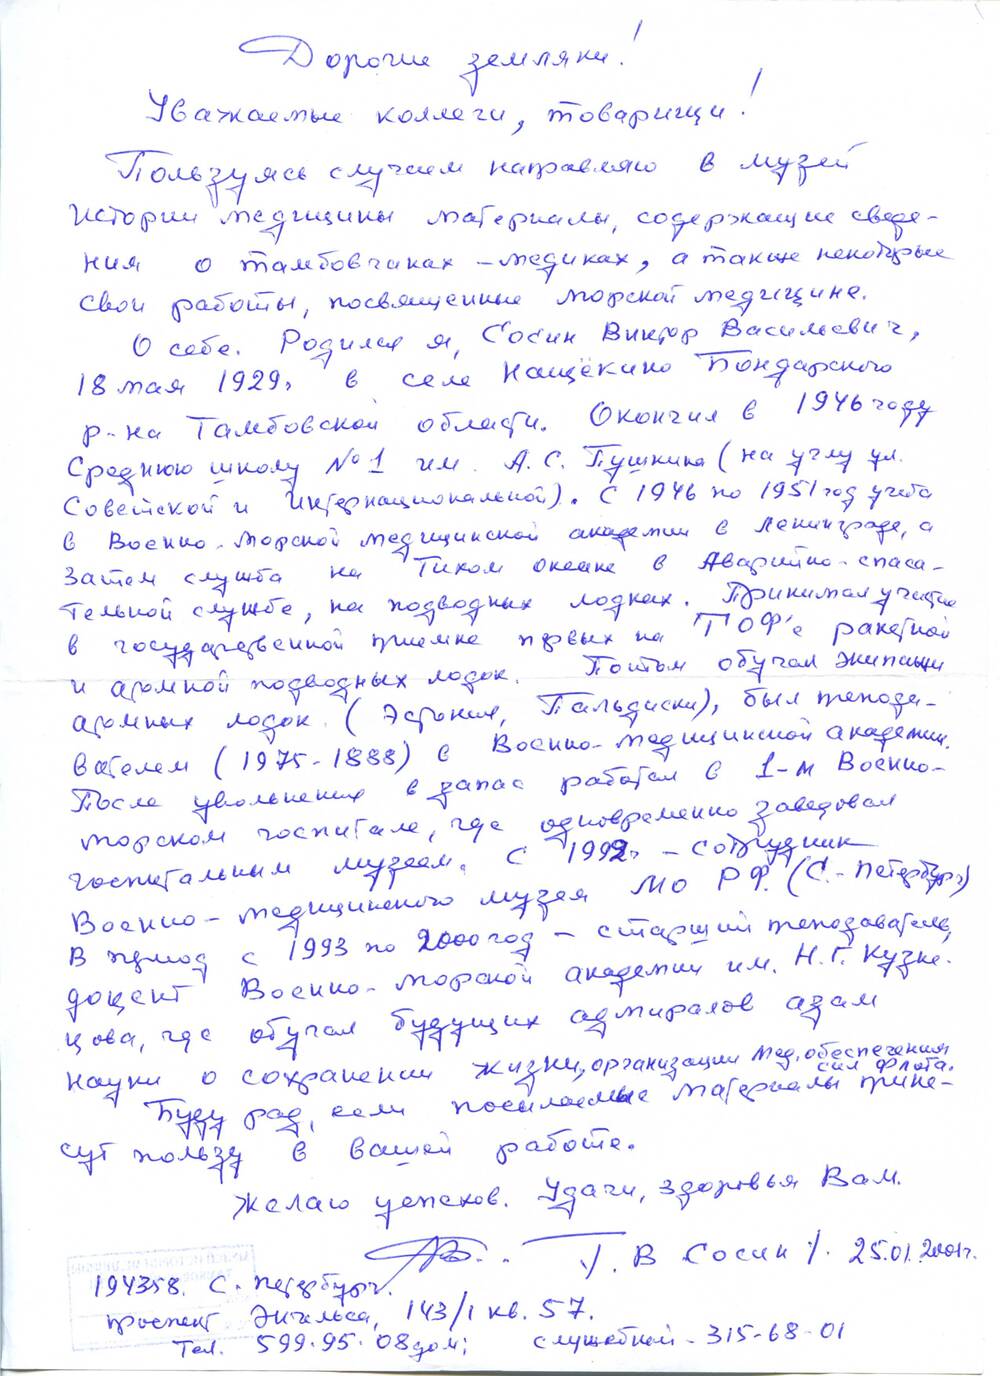 Дорогие земляки!
Уважаемые коллеги, товарищи!
Пользуясь случаем направляю в музей
истории медицины материалы, содержащие сведе-
ния о тамбовчаках-медиках, а также некоторые
свои работы, посвященные морской медицине.
О себе. Родился я, Сосин Виктор Васильевич,
18 мая 1929г в селе Нащёкино Бондарского
р-на Тамбовской области. Окончил в 1946 году
Среднюю школу №1 им. А.С. Пушкина (на углу ул.
Советской и Интернациональной). С 1946 по 1951 год учеба
в Военно-морской медицинской академии в Ленинграде, а
Затем служба на Тихом океане в Аварийно-спаса-
тельной службе, на подводных лодках. Принимал участие
в государственной приемке первых на ТОФ'е ракетной
и атомной подводных лодок. Потом обучал экипажи
атомных лодок (Эстония, Пальдиски), был препода-
вателем (1975-1888) в Военно-медицинской академии.
После увольнения в запас работал в 1-м Военно-
морском госпитале, где одновременно заведовал
госпитальным музеем. С 1992г - сотрудник
Военно-медицинского музея МО РФ. (С.-Петербург)
В период с 1993 по 2000 год - старший преподаватель,
доцент Военно-морской академии им. Н.Г. Кузне-
цова, где обучал будущих адмиралов азам
науки о сохранении жизни, организации мед. обеспечения
сил флота.
Буду рад, если посылаемые материалы прине-
сут пользу в вашей работе.
Желаю успехов. Удачи, здоровья Вам.
/. В Сосин /. 25.01.2001г.
194358. С. Петербург.
проспект Энгельса, 143/1 кв. 57.
Тел. 599-95-08 дом; служебный - 315-68-01